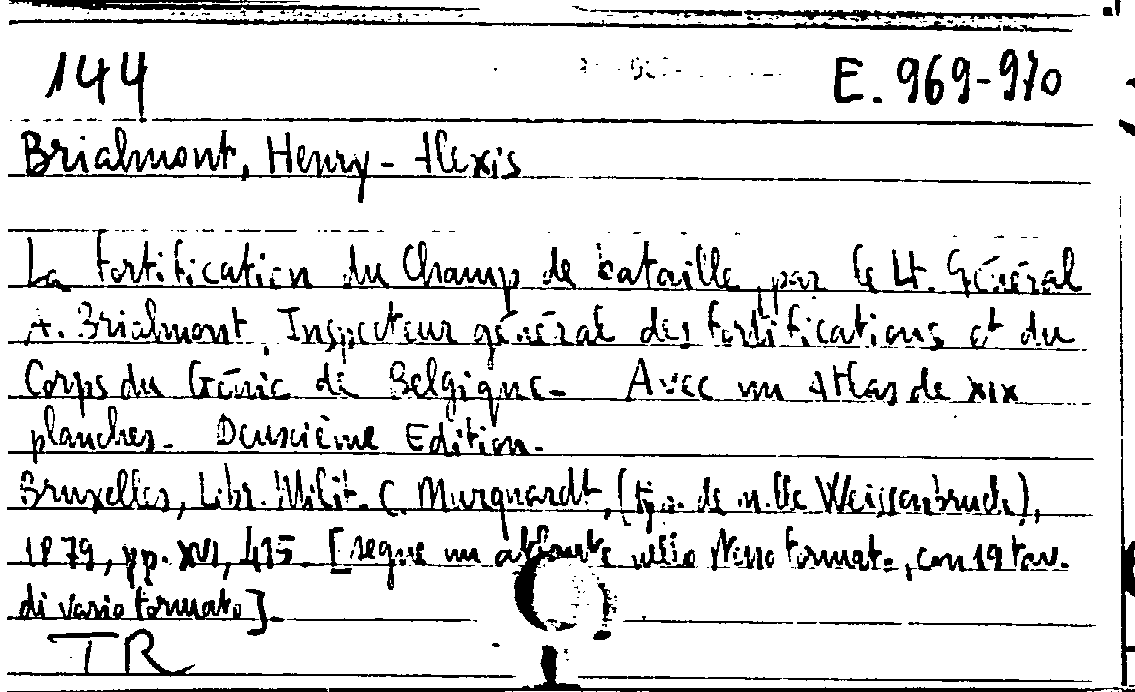 144 E. 969-970
Brialmont, Henry-Alexis
La fortification du Champ de bataille, par le Lt. Général
A. Brialmont, Inspecteur général des fortifications et du
Corps du Génie de Belgique- Avec un Atlas de XIX
planches- Deuxième Edition-
Bruxelles, Libr. Milit. C. Murquardt, (typ. de Weissenbruch),
1879, pp. XVI, 415- [segue un atlante nello stesso formato, con 19 tav.
di vario formato]-
TR